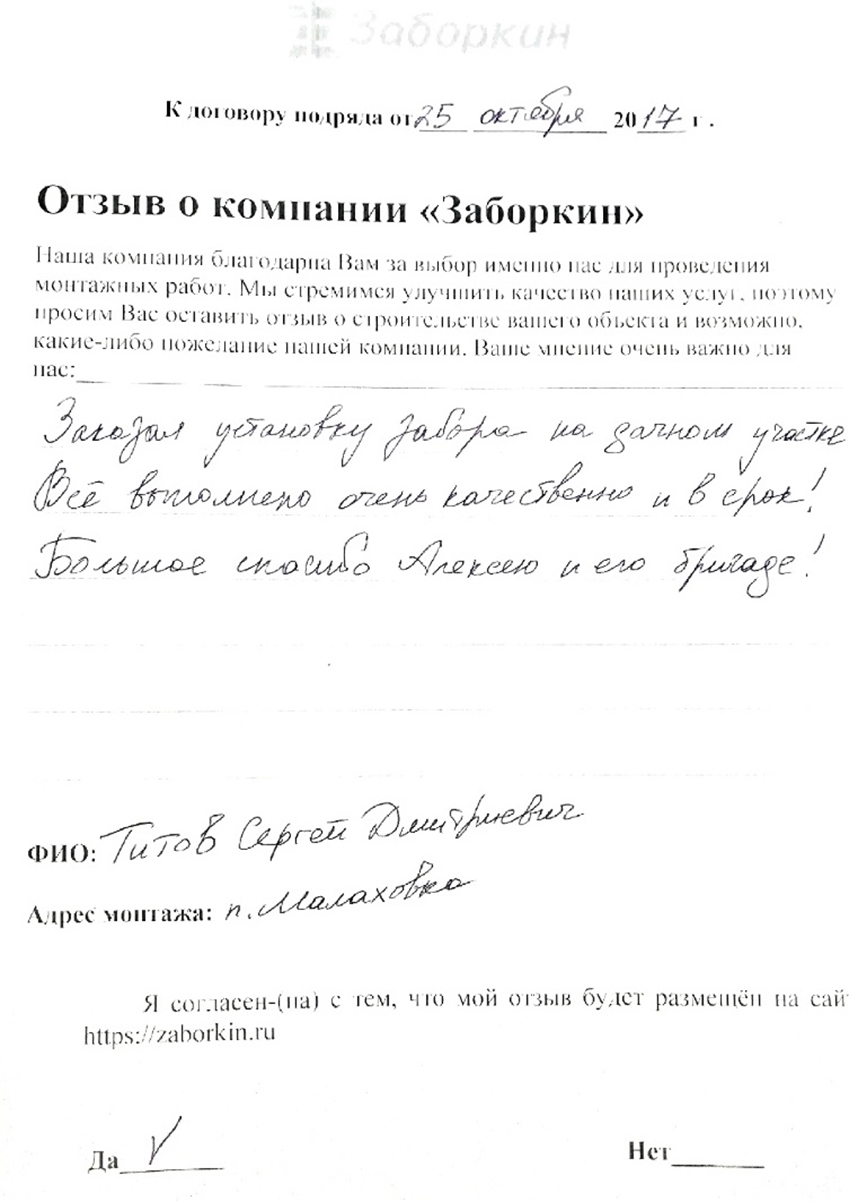 Заборкин
К договору подряда от 25 октября 2017 г.
Отзыв о компании «Заборкин»
Наша компания благодарна Вам за выбор именно нас для проведения
монтажных работ. Мы стремимся улучшить качество наших услуг, поэтому
просим Вас оставить отзыв о строительстве вашего объекта и возможно,
какие-либо пожелание нашей компании. Ваше мнение очень важно для
нас:
Заказал установку забора на дачном участке
Всё выполнено очень качественно и в срок!
Большое спасибо Алексею и его бригаде!
ФИО: Титов Сергей Дмитриевич
Адрес монтажа: п. Малаховка
Я согласен-(на) с тем, что мой отзыв будет размещён на сайт
https://zaborkin.ru
Да V Нет